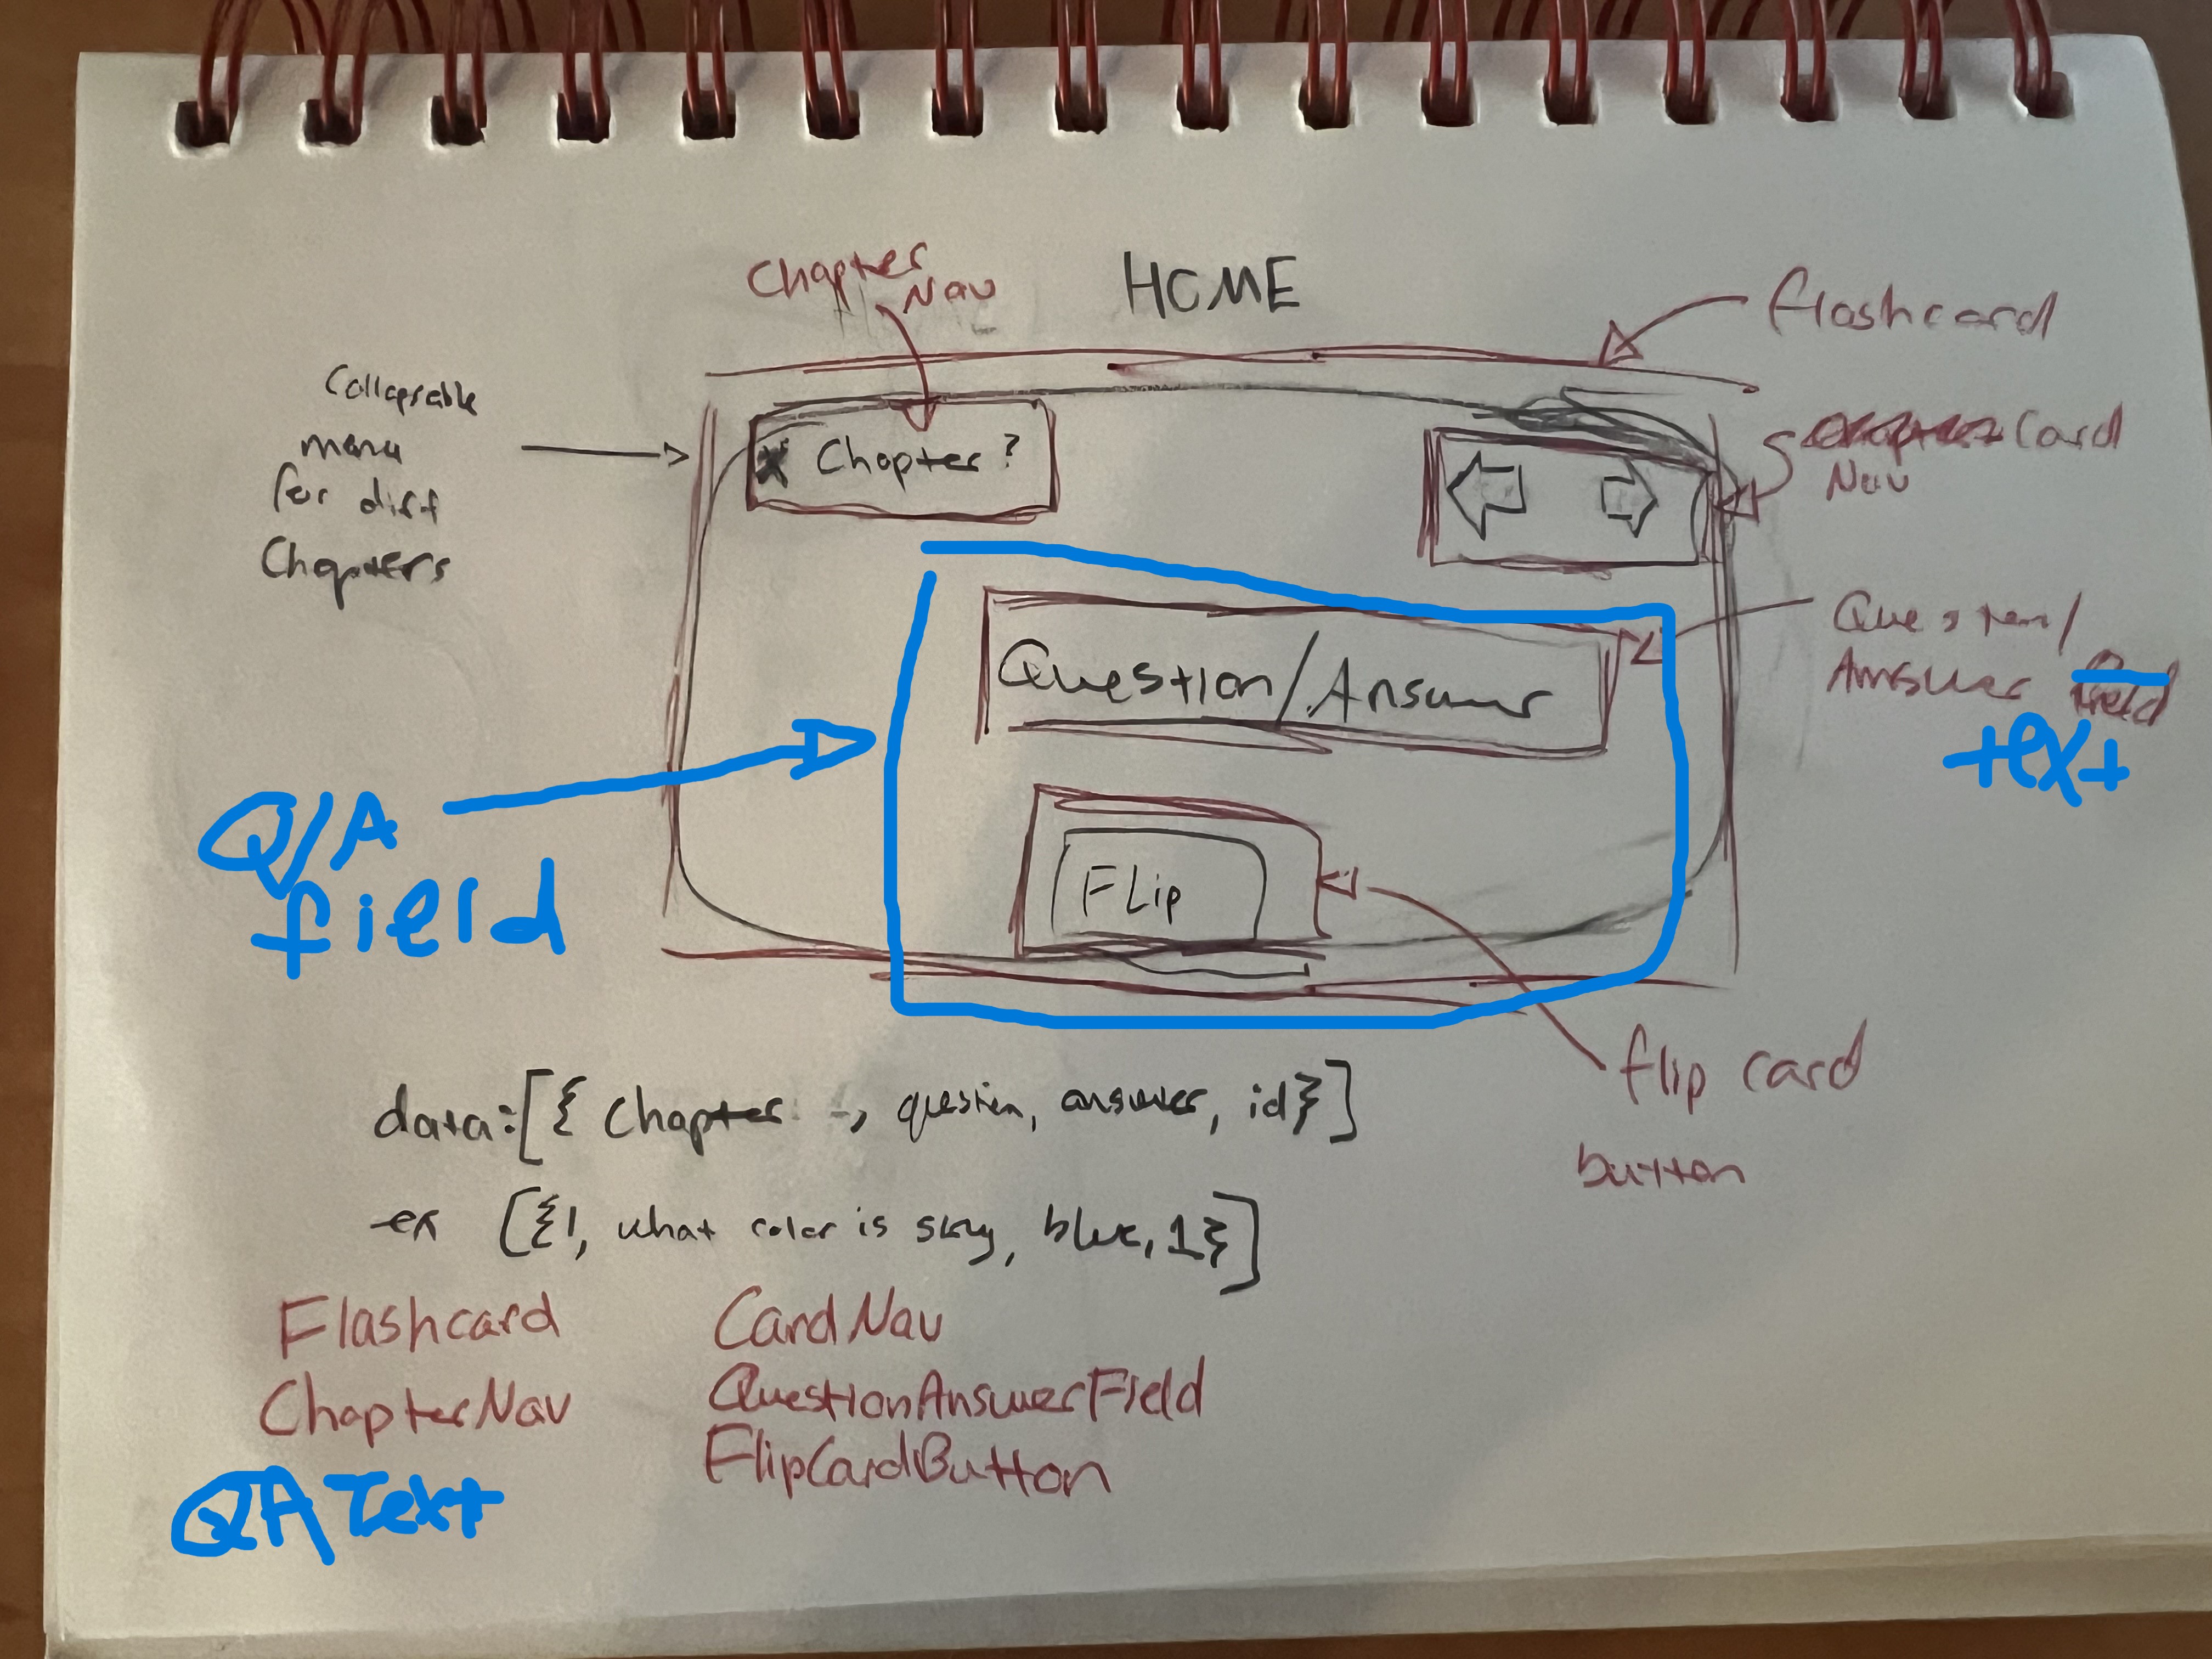 HOME
Chapter
Nav
flashcard
Collapsable
menu
for diff
Chapters
Chapter ?
Card
Nav
Question/Answer
Question/
Answer field
text
Q/A
field
FLip
flip card
button
data:[{ Chapter -, question, answer, id}]
-ex [{1, what color is sky, blue, 1}]
Flashcard
CardNav
ChapterNav
QuestionAnswerField
FlipCardButton
QA Text